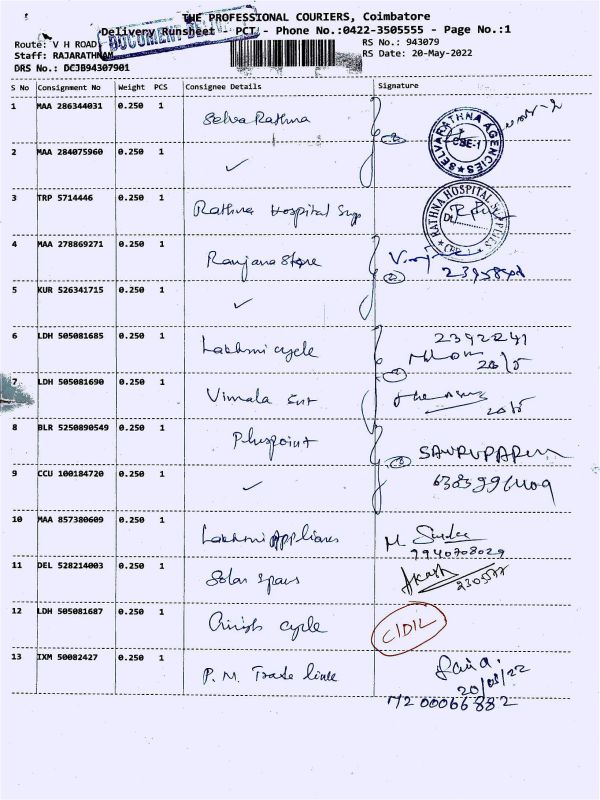 THE PROFESSIONAL COURIERS, Coimbatore
Delivery Runsheet - PCT - Phone No.:0422-3505555 - Page No.:1
Route: V H ROAD
RS No.: 943079
Staff: RAJARATHNAM
RS Date: 20-May-2022
DRS No.: DCJB94307901
S No Consignment No Weight PCS Consignee Details Signature
1 MAA 286344031 0.250 1 Selva Rathna
SELVARATHNA AGENCIES CBE-1
2 MAA 284075960 0.250 1 ✓
3 TRP 5714446 0.250 1 Rathna Hospital Supp
RATHNA HOSPITAL SUPPLIES CBE-1
4 MAA 278869271 0.250 1 Ranjana Store
5 KUR 526341715 0.250 1 ✓
6 LDH 505081685 0.250 1 Lakhmi cycle 2392241
20/5
7 LDH 505081690 0.250 1 Vimala Ent
20/5
8 BLR 5250890549 0.250 1 Pluspoint
9 CCU 100184720 0.250 1 ✓
10 MAA 857380609 0.250 1 Lakhmi Appliances M.
9940708029
11 DEL 528214003 0.250 1 Solar Spares Akash
2305577
12 LDH 505081687 0.250 1 cycle CIDIL
13 IXM 50082427 0.250 1 P.M. Trade link
20/05/22
7200066882